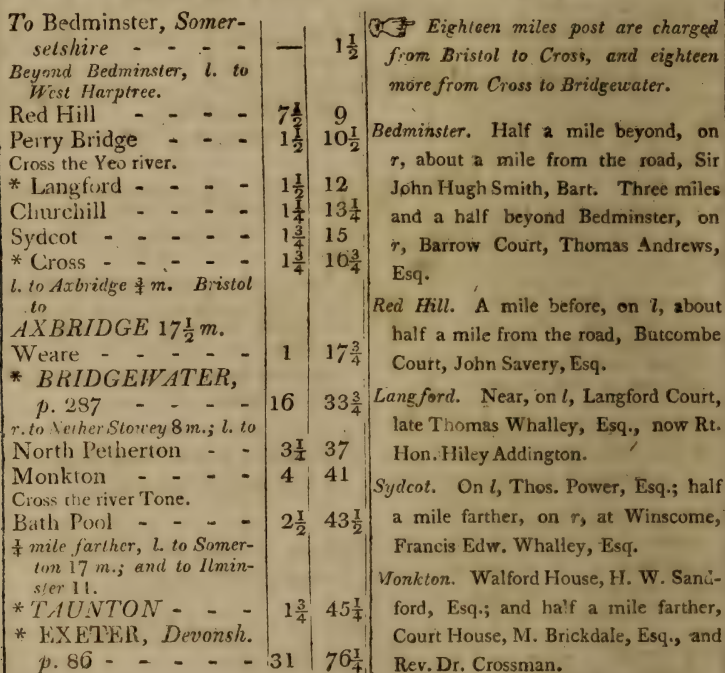 To Bedminster, Somer-
setshire - - - - — 1½
Beyond Bedminster, l. to
West Harptree.
Red Hill - - - - 7½ 9
Perry Bridge - - - 1½ 10½
Cross the Yeo river.
* Langford - - - - 1½ 12
Churchill - - - - 1¼ 13¼
Sydcot - - - - - 1¾ 15
* Cross - - - - - 1¾ 16¾
l. to Axbridge ¾ m. Bristol
to
AXBRIDGE 17½ m.
Weare - - - - - 1 17¾
* BRIDGEWATER,
p. 287 - - - - 16 33¾
r. to Nether Stowey 8 m.; l. to
North Petherton - - 3¼ 37
Monkton - - - - 4 41
Cross the river Tone.
Bath Pool - - - - 2½ 43½
¼ mile farther, l. to Somer-
ton 17 m.; and to Ilmin-
ster 11.
* TAUNTON - - - 1¾ 45¼
* EXETER, Devonsh.
p. 86 - - - - - 31 76¼
☞ Eighteen miles post are charged
from Bristol to Cross, and eighteen
more from Cross to Bridgewater.
Bedminster. Half a mile beyond, on
r, about a mile from the road, Sir
John Hugh Smith, Bart. Three miles
and a half beyond Bedminster, on
r, Barrow Court, Thomas Andrews,
Esq.
Red Hill. A mile before, on l, about
half a mile from the road, Butcombe
Court, John Savery, Esq.
Langford. Near, on l, Langford Court,
late Thomas Whalley, Esq., now Rt.
Hon. Hiley Addington.
Sydcot. On l, Thos. Power, Esq.; half
a mile farther, on r, at Winscome,
Francis Edw. Whalley, Esq.
Monkton. Walford House, H. W. Sand-
ford, Esq.; and half a mile farther,
Court House, M. Brickdale, Esq., and
Rev. Dr. Crossman.